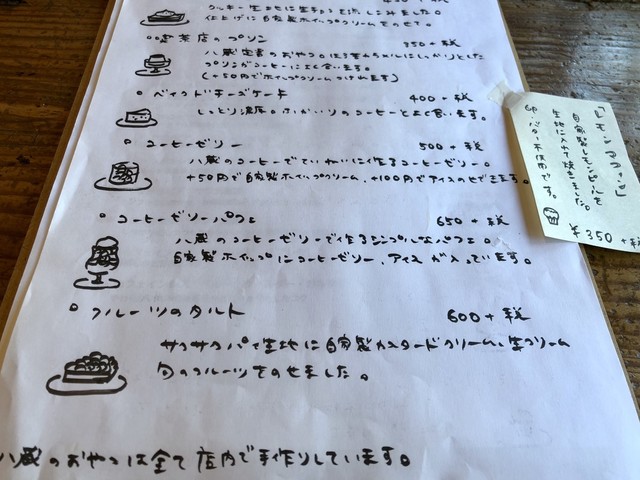 クッキー生地に生チョコを流しこみました。
仕上げに自家製ホイップクリームをのせて。
喫茶店のプリン 350+税
八蔵定番のおやつ。
プリンがコーヒーによく合います。
(+50円でホイップクリームつけれます)
ベイクドチーズケーキ 400+税
しっとり濃厚。ふかいりのコーヒーとよく合います。
コーヒーゼリー 500+税
八蔵のコーヒーでていねいに作るコーヒーゼリー。
+50円で自家製ホイップクリーム、+100円でアイスのせできます。
コーヒーゼリーパフェ 650+税
八蔵のコーヒーゼリーで作るシンプルなパフェ。
自家製ホイップにコーヒーゼリー、アイスが入っています。
フルーツのタルト 600+税
サクサクパイ生地に自家製カスタードクリーム、生クリーム
旬のフルーツをのせました。
八蔵のおやつは全て店内で手作りしています。
「レモンマフィン」
自家製レモンピールを
生地に入れて焼きました。
卵・バター不使用です。
¥350+税